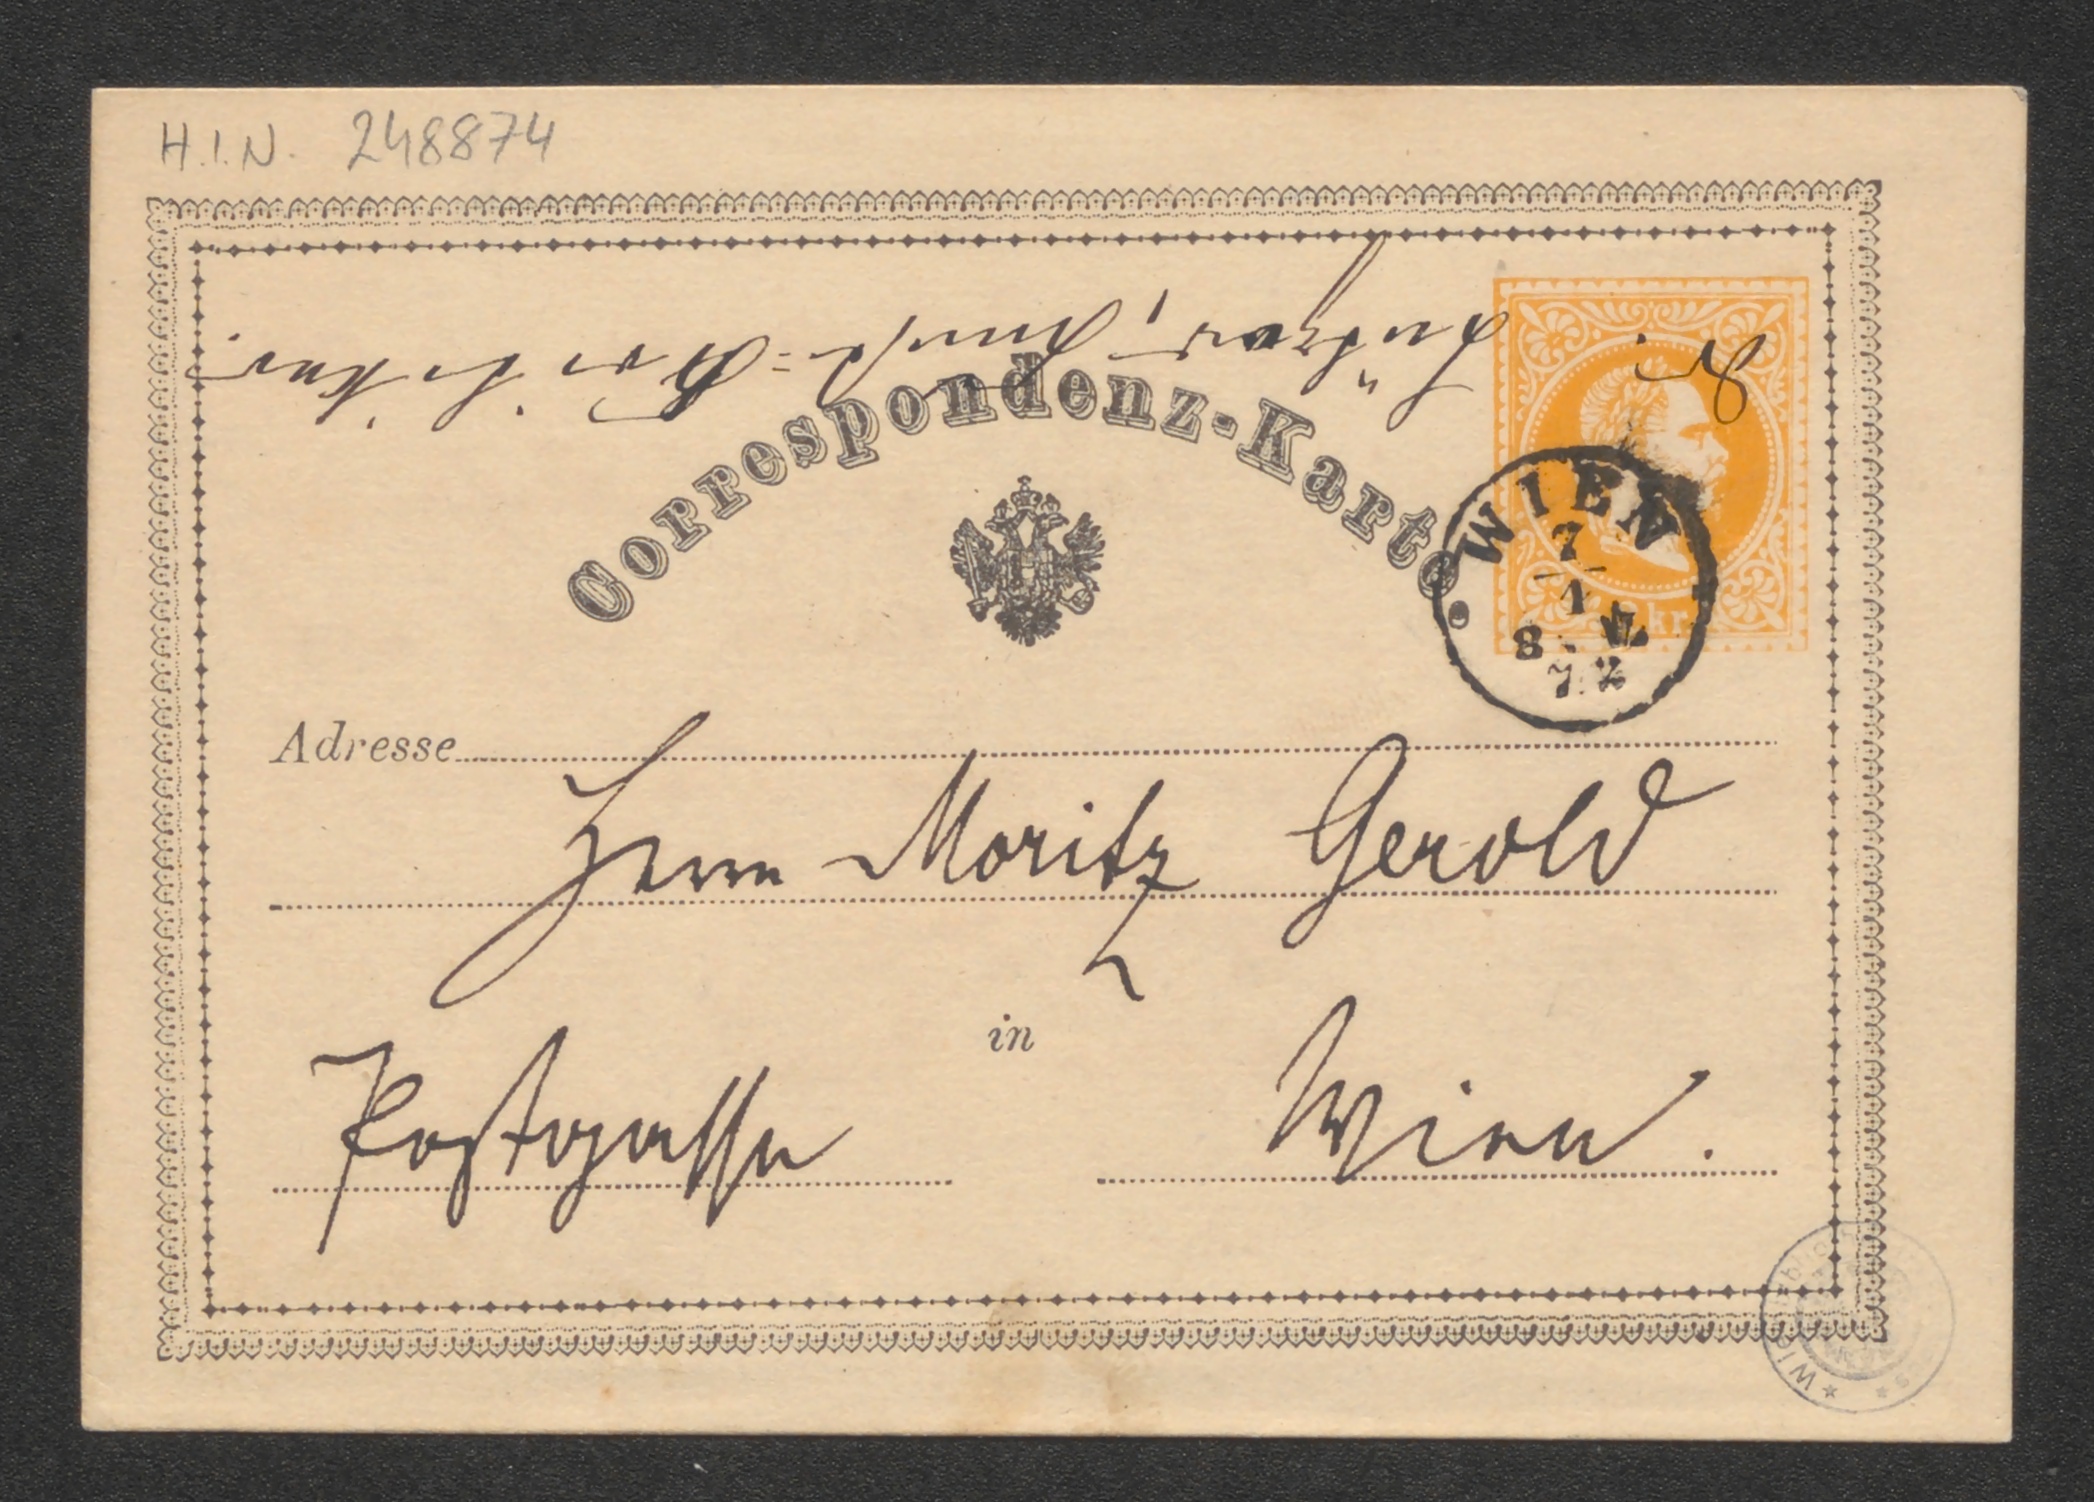 H.I.N. 248874
Correspondenz-Karte
WIEN
7
1
8. V.
72
2 kr.
Adresse
Herrn Moritz Gerold
in
Postgasse Wien.